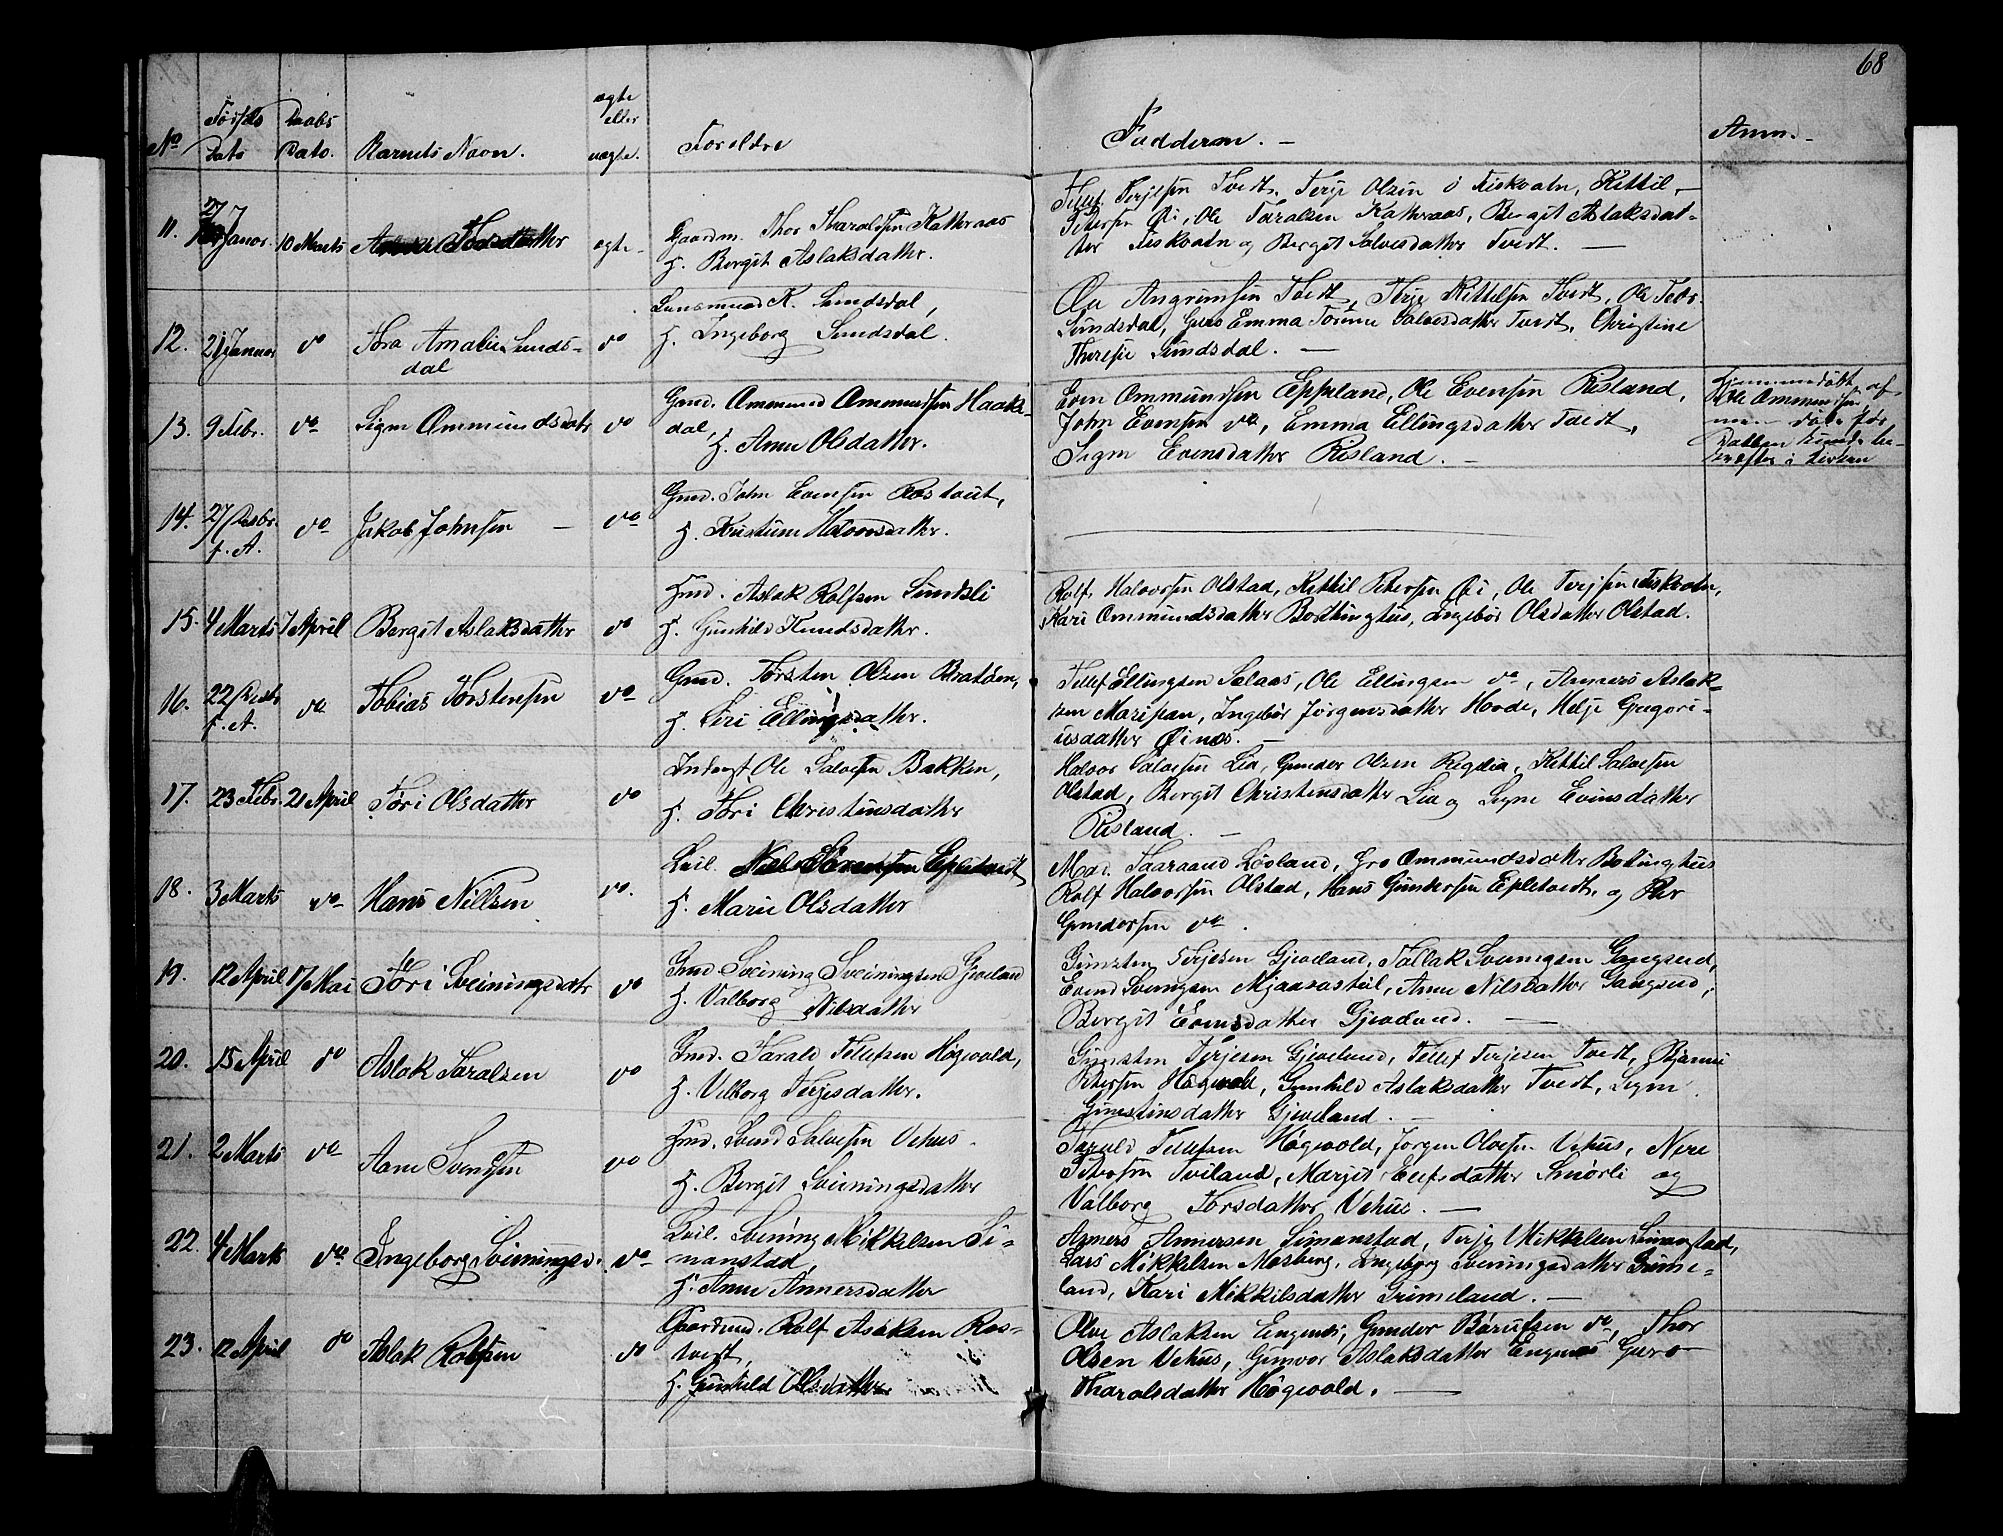 68
No Fødsels Dato Daabs Dato. Barnets Navn. ægte eller uægte. Foreldre Fadderen. — Anm.
11. 27 Januar. 10 Marts Thorsdatter ægte Gaardm. Thor Tharalsen Katteraas
H. Bergit Aslaksdatter.
Tellef Terjesen Tvedt, Terje Olsen Fiskvatn, Kittil
Petersen Øi, Ole Taralsen Katteraas, Bergit Aslaksdat-
ter Fiskvatn og Bergit Salvesdatter Tvedt. —
12. 21 Januar do Thora Amalie Sunds-
dal do K. Sundsdal,
H. Ingeborg Sundsdal.
Ole Angrimsen Tvedt, Terje Kittelsen Tvedt, Ole
Sundsdal, Emma Salvesdatter Tvedt, Christine
Therese Sundsdal. —
13. 9 Febr. do Sign Ommundsdatr do Gmd. Ommund Ommundsen Haaks-
dal,
H. Anne Olsdatter.
Even Ommundsen Eppland, Ole Evensen Risland,
John Evensen do, Emma Ellingsdatter Tvedt,
Sign Evensdatter Risland. —
Hjemmedøbt af
Ole Ommundsen
men døde før
Daaben kunde be-
kræftes i Kirken
14. 27 Decbr. f. A. do Jakob Johnsen — do Gmd. John Evensen Rostvet,
H. Kirstine Halvorsdatter.
15. 4 Marts 7 April Bergit Aslaksdatter do Hmd. Aslak Rolfsen Sundsli
H. Gunhild Knudsdatter.
Rolf Halvorsen Olstad, Kittil Petersen Øi, Ole Terjsen Fiskvatn,
Kari Ommundsdatter Bottinghus, Ingebor Olsdatter Olstad.
16. 22 Decbr f. A. do Thobias Torstensen do Gmd. Torsten Olsen Bratåen,
H. Siri Ellingsdatter.
Tellef Ellingsen Salaas, Ole Ellingsen do, Anners Aslak-
sen Marisan, Ingebor Jørgensdatter Hovde, Helje Gregori-
usdatter Øinæs. —
17. 23 Febr. 21 April Tori Olsdatter do Inderst Ole Salvesen Bakken,
H. Tori Christensdatter
Halvor Salvesen Lia, Gunder Olsen Rigelia, Kittil Salvesen
Olstad, Bergit Christensdatter Lia og Signe Evensdatter
Risland. —
18. 3 Marts do Hans Nilsen do. Leil. Epletvedt
H. Marie Olsdatter
Mad. Taaraand Løvland, Gro Ommundsdatr Bottinghus
Rolf Halvorsen Olstad, Hans Gundersen Epletvedt, og Per
Gundersen do.
19. 12 April 17 Mai Tori Sveiningsdatr do Gmd Sveining Sveiningsen Gjeveland
H. Valborg Nilsdatter
Gunsten Terjesen Gjeveland, Tallak Sveningsen Gangsend,
Evend Svenigsen Mjaavastøil, Anne Nilsdatter Gangsend,
Bergit Evensdatter Gjeveland. —
20. 15 April do Aslak Haralsen do Gmd. Harald Tellefsen Høgevold,
H. Vilborg Terjesdatter.
Gunsten Terjesen Gjeveland, Tellef Terjesen Tvedt, Bjarne
Petersen Høgevold, Gunhild Aslaksdatter Tvedt, Sign
Gunstinsdatter Gjeveland. —
21. 2 Marts do Aane Svensen do Hmd. Svend Salvesen Vehus.
H. Bergit Sveiningsdatter
Harald Tellefsen Høgevold, Jørgen Olvesen Vehus, Nere
Tviland, Margit Smørli og
Valborg Torsdatter Vehus. —
22. 4 Marts do Ingeborg Sveiningsd. do Leil. Svening Mikkelsen Si-
manstad,
H. Anne Annersdatter
Anners Annersen Simanstad, Terje Mikkelsen Simanstad,
Lars Mikkelsen Mosberg, Ingeborg Sveningsdatter Grime-
land, Kari Mikkilsdatter Grimeland. —
23. 12 April do Aslak Rolfsen do Gaardmd. Rolf Aslaksen Ros-
tvedt,
H. Gunhild Olsdatter
Olve Aslaksen Engenes, Gunder Bårufsen do, Thor
Olsen Vehus, Gunvor Aslaksdatter Engenes Guro
Tharalsdatter Høgevold. —